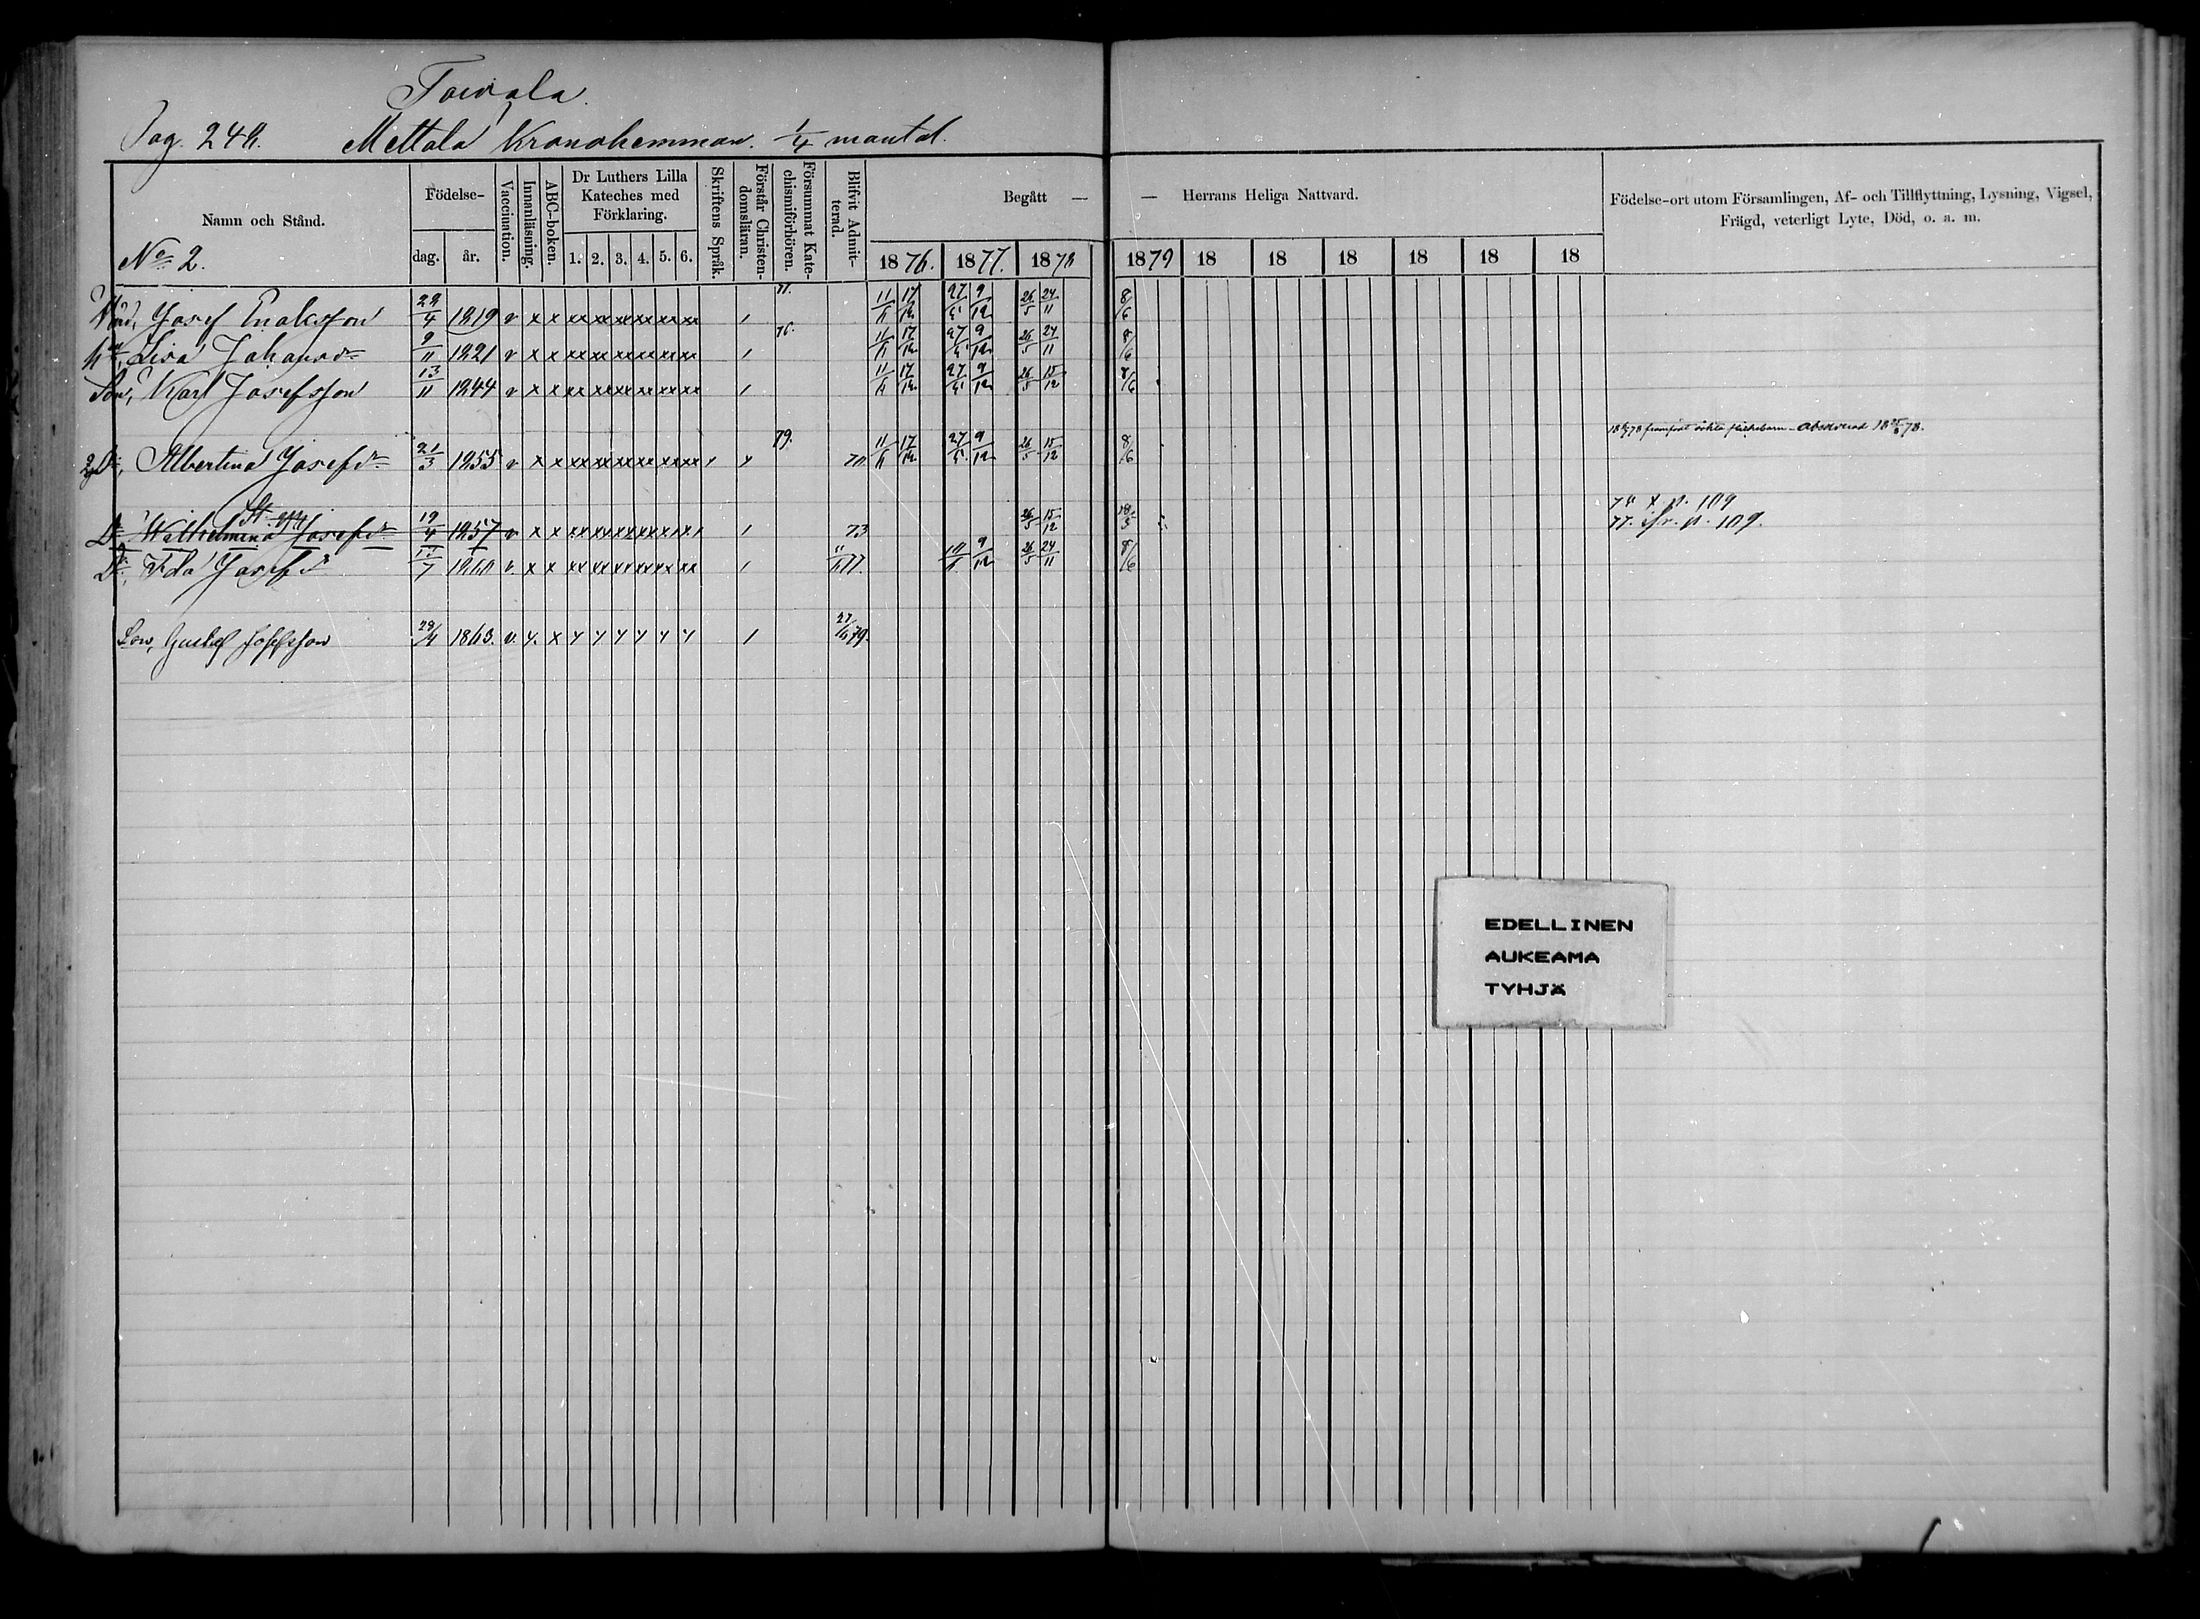 Toivola.
Pag. 248. Mettala Kronohemman. 1/4 mantal.
Namn och Stånd. Födelse- dag. år. Vaccination. Innanläsning. ABC-boken. Dr Luthers Lilla Kateches med Förklaring. 1. 2. 3. 4. 5. 6. Skriftens Språk. Förstår Christendomsläran. Försummat Katechismiförhören. Blifvit Admitterad. Begått — — Herrans Heliga Nattvard. Födelse-ort utom Församlingen, Af- och Tillflyttning, Lysning, Vigsel, Frägd, veterligt Lyte, Död, o. a. m.
No 2. 1876. 1877. 1878 1879 18 18 18 18 18 18
Josef 4 1819 v x x xx xx xx xx xx xx / 77. 11/6 17/12 27/5 9/12 26/5 24/11 8/6
Lisa Johansdr 9/11 1821 v x x xx xx xx xx xx xx / 76. 11/6 17/12 27/5 9/12 26/5 24/11 8/6
Son, Karl Josefsson 13/11 1844 v x x xx xx xx xx xx xx / 11/6 17/12 27/5 9/12 26/5 15/12 8/6
Dr, Albertina Josefdr 21/3 1855 v x x xx xx xx xx xx xx 79. 11/6 17/12 27/5 9/12 26/5 15/12 8/6 Absolverad
Dr Wilhelmina Josefdr 19/4 1857 v x x xx xx xx xx xx xx / 73 26/5 15/12 18/5 p. 109
77. ifr. p. 109.
Dr, Ida Josefdr 7 1860 v. x x xx xx xx xx xx xx / 77. 9/12 26/5 24/11 8/6
Son, Gustaf Josefsson 28/4 1863. v. x. x x x x x x x / 27/6 79.
EDELLINEN
AUKEAMA
TYHJÄ